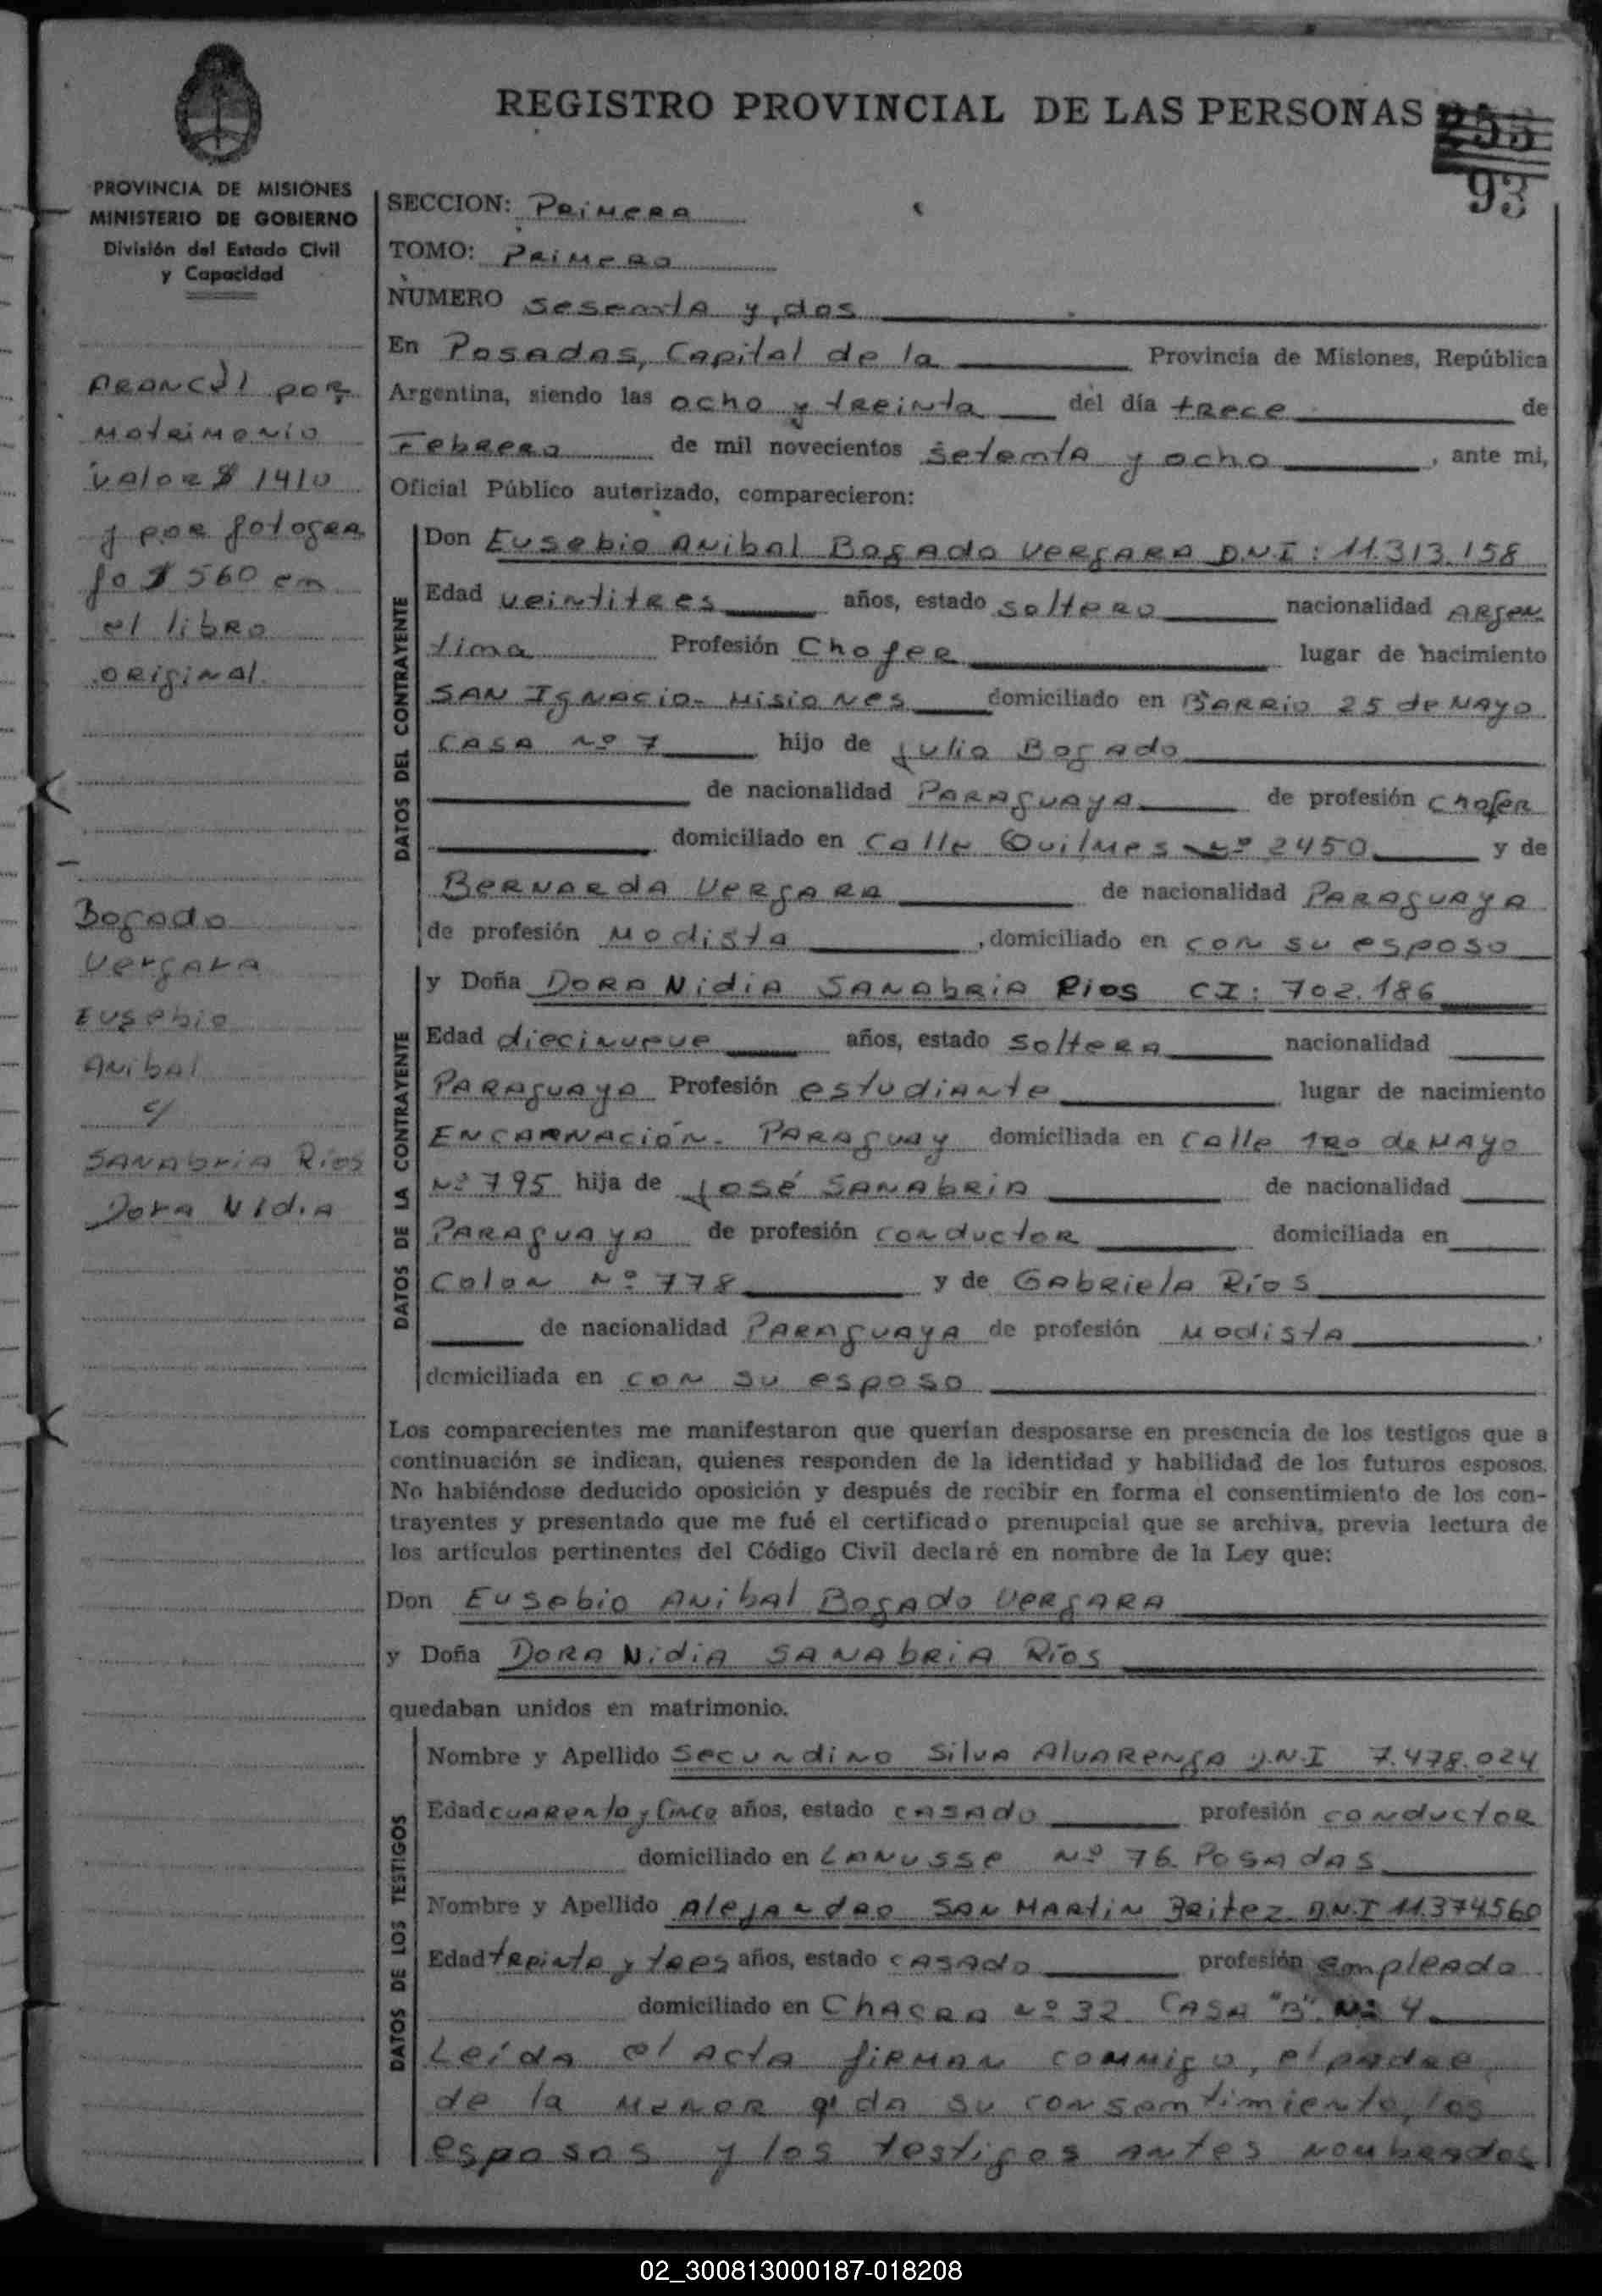 REGISTRO PROVINCIAL DE LAS PERSONAS
253
93
PROVINCIA DE MISIONES
MINISTERIO DE GOBIERNO
División del Estado Civil
y Capacidad
ARANCel por
Matrimonio
valor $ 1410
y por fotogra
fo $ 560 en
el libro
original.
Bogado
Vergara
Eusebio
Anibal
c/
Sanabria Rios
Dora Nidia
SECCION: Primera
TOMO: Primero
NUMERO sesenta y dos
En Posadas, Capital de la Provincia de Misiones, República
Argentina, siendo las ocho y treinta del día trece de
Febrero de mil novecientos setenta y ocho, ante mi,
Oficial Público autorizado, comparecieron:
DATOS DEL CONTRAYENTE
Don Eusebio Anibal Bogado Vergara D.N.I: 11.313.158
Edad veintitres años, estado soltero nacionalidad Argen
tina Profesión Chofer lugar de nacimiento
San Ignacio - Misiones domiciliado en Barrio 25 de Mayo
Casa Nº 7 hijo de Julio Bogado
de nacionalidad Paraguaya de profesión chofer
domiciliado en Calle Quilmes Nº 2450 y de
Bernarda Vergara de nacionalidad Paraguaya
de profesión Modista, domiciliado en con su esposo
DATOS DE LA CONTRAYENTE
y Doña Dora Nidia Sanabria Rios CI: 702.186
Edad diecinueve años, estado soltera nacionalidad
Paraguaya Profesión estudiante lugar de nacimiento
Encarnación - Paraguay domiciliada en Calle 1ro de Mayo
Nº 795 hija de José Sanabria de nacionalidad
Paraguaya de profesión conductor domiciliada en
Colon Nº 778 y de Gabriela Ríos
de nacionalidad Paraguaya de profesión Modista,
domiciliada en con su esposo
Los comparecientes me manifestaron que querían desposarse en presencia de los testigos que a
continuación se indican, quienes responden de la identidad y habilidad de los futuros esposos.
No habiéndose deducido oposición y después de recibir en forma el consentimiento de los con-
trayentes y presentado que me fué el certificado prenupcial que se archiva, previa lectura de
los artículos pertinentes del Código Civil declaré en nombre de la Ley que:
Don Eusebio Anibal Bogado Vergara
y Doña Dora Nidia Sanabria Ríos
quedaban unidos en matrimonio.
DATOS DE LOS TESTIGOS
Nombre y Apellido Secundino Silva Alvarenga D.N.I 7.478.024
Edad cuarenta y cinco años, estado casado profesión conductor
domiciliado en Lanusse Nº 76 Posadas
Nombre y Apellido Alejandro San Martin Britez D.N.I 11.374560
Edad treinta y tres años, estado casado profesión empleado
domiciliado en Chacra Nº 32 Casa "B" Nº 4
Leida el acta firman conmigo, el padre
de la menor q' da su consentimiento, los
esposos y los testigos antes nombrados
02_300813000187-018208